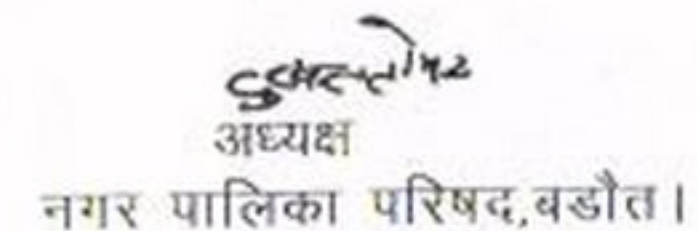 अध्यक्ष
नगर पालिका परिषद,बडौत।